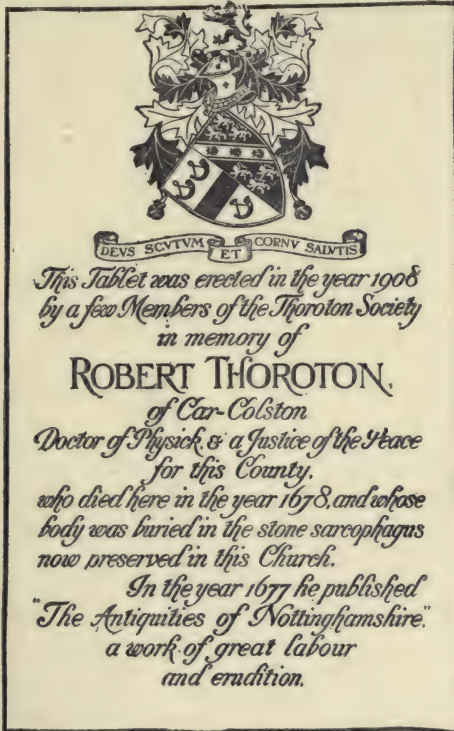 DEVS SCVTVM ET CORNV SALVTIS
This Tablet was erected in the year 1908
by a few Members of the Thoroton Society
in memory of
ROBERT THOROTON,
of Car-Colston
Doctor of Physick, & a Justice of the Peace
for this County,
who died here in the year 1678, and whose
body was buried in the stone sarcophagus
now preserved in this Church.
In the year 1677 he published
"The Antiquities of Nottinghamshire,"
a work of great labour
and erudition.